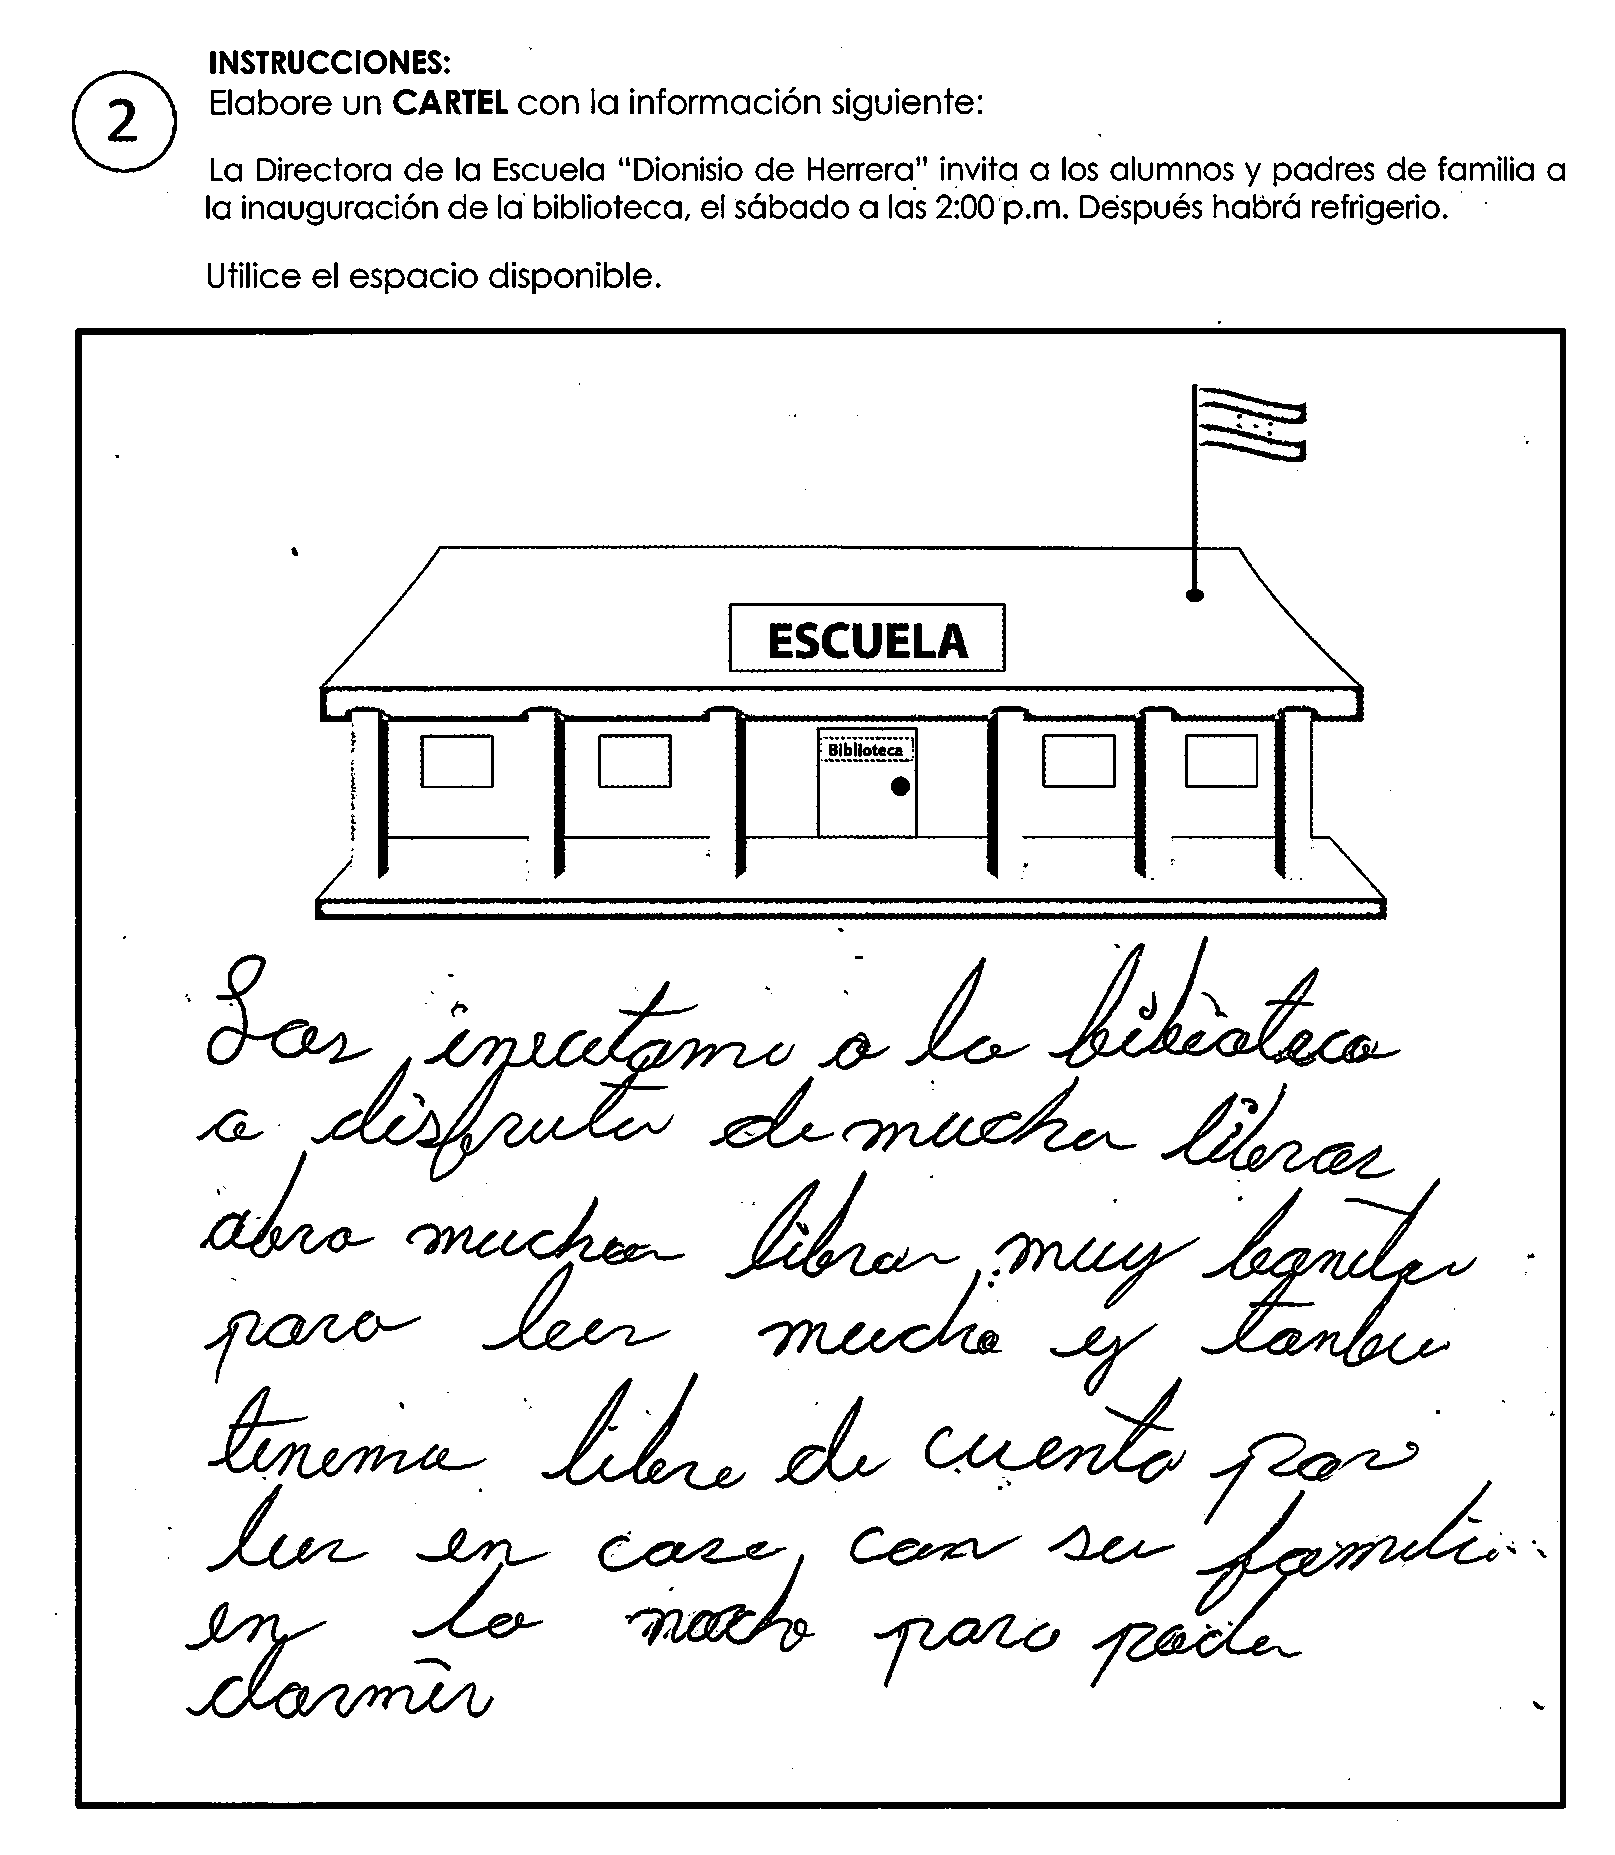 INSTRUCCIONES:
2
Elabore un CARTEL con la información siguiente:
La Directora de la Escuela "Dionisio de Herrera" invita a los alumnos y padres de familia a
la inauguración de la biblioteca, el sábado a las 2:00 p.m. Después habrá refrigerio.
Utilice el espacio disponible.
ESCUELA
Biblioteca
Los a la bibioteca
a disfruta de mucho libros
abra mucho libros muy
para leer mucho y
libre de cuento par
leer en casa con su famili
en la noche para poder
dormir